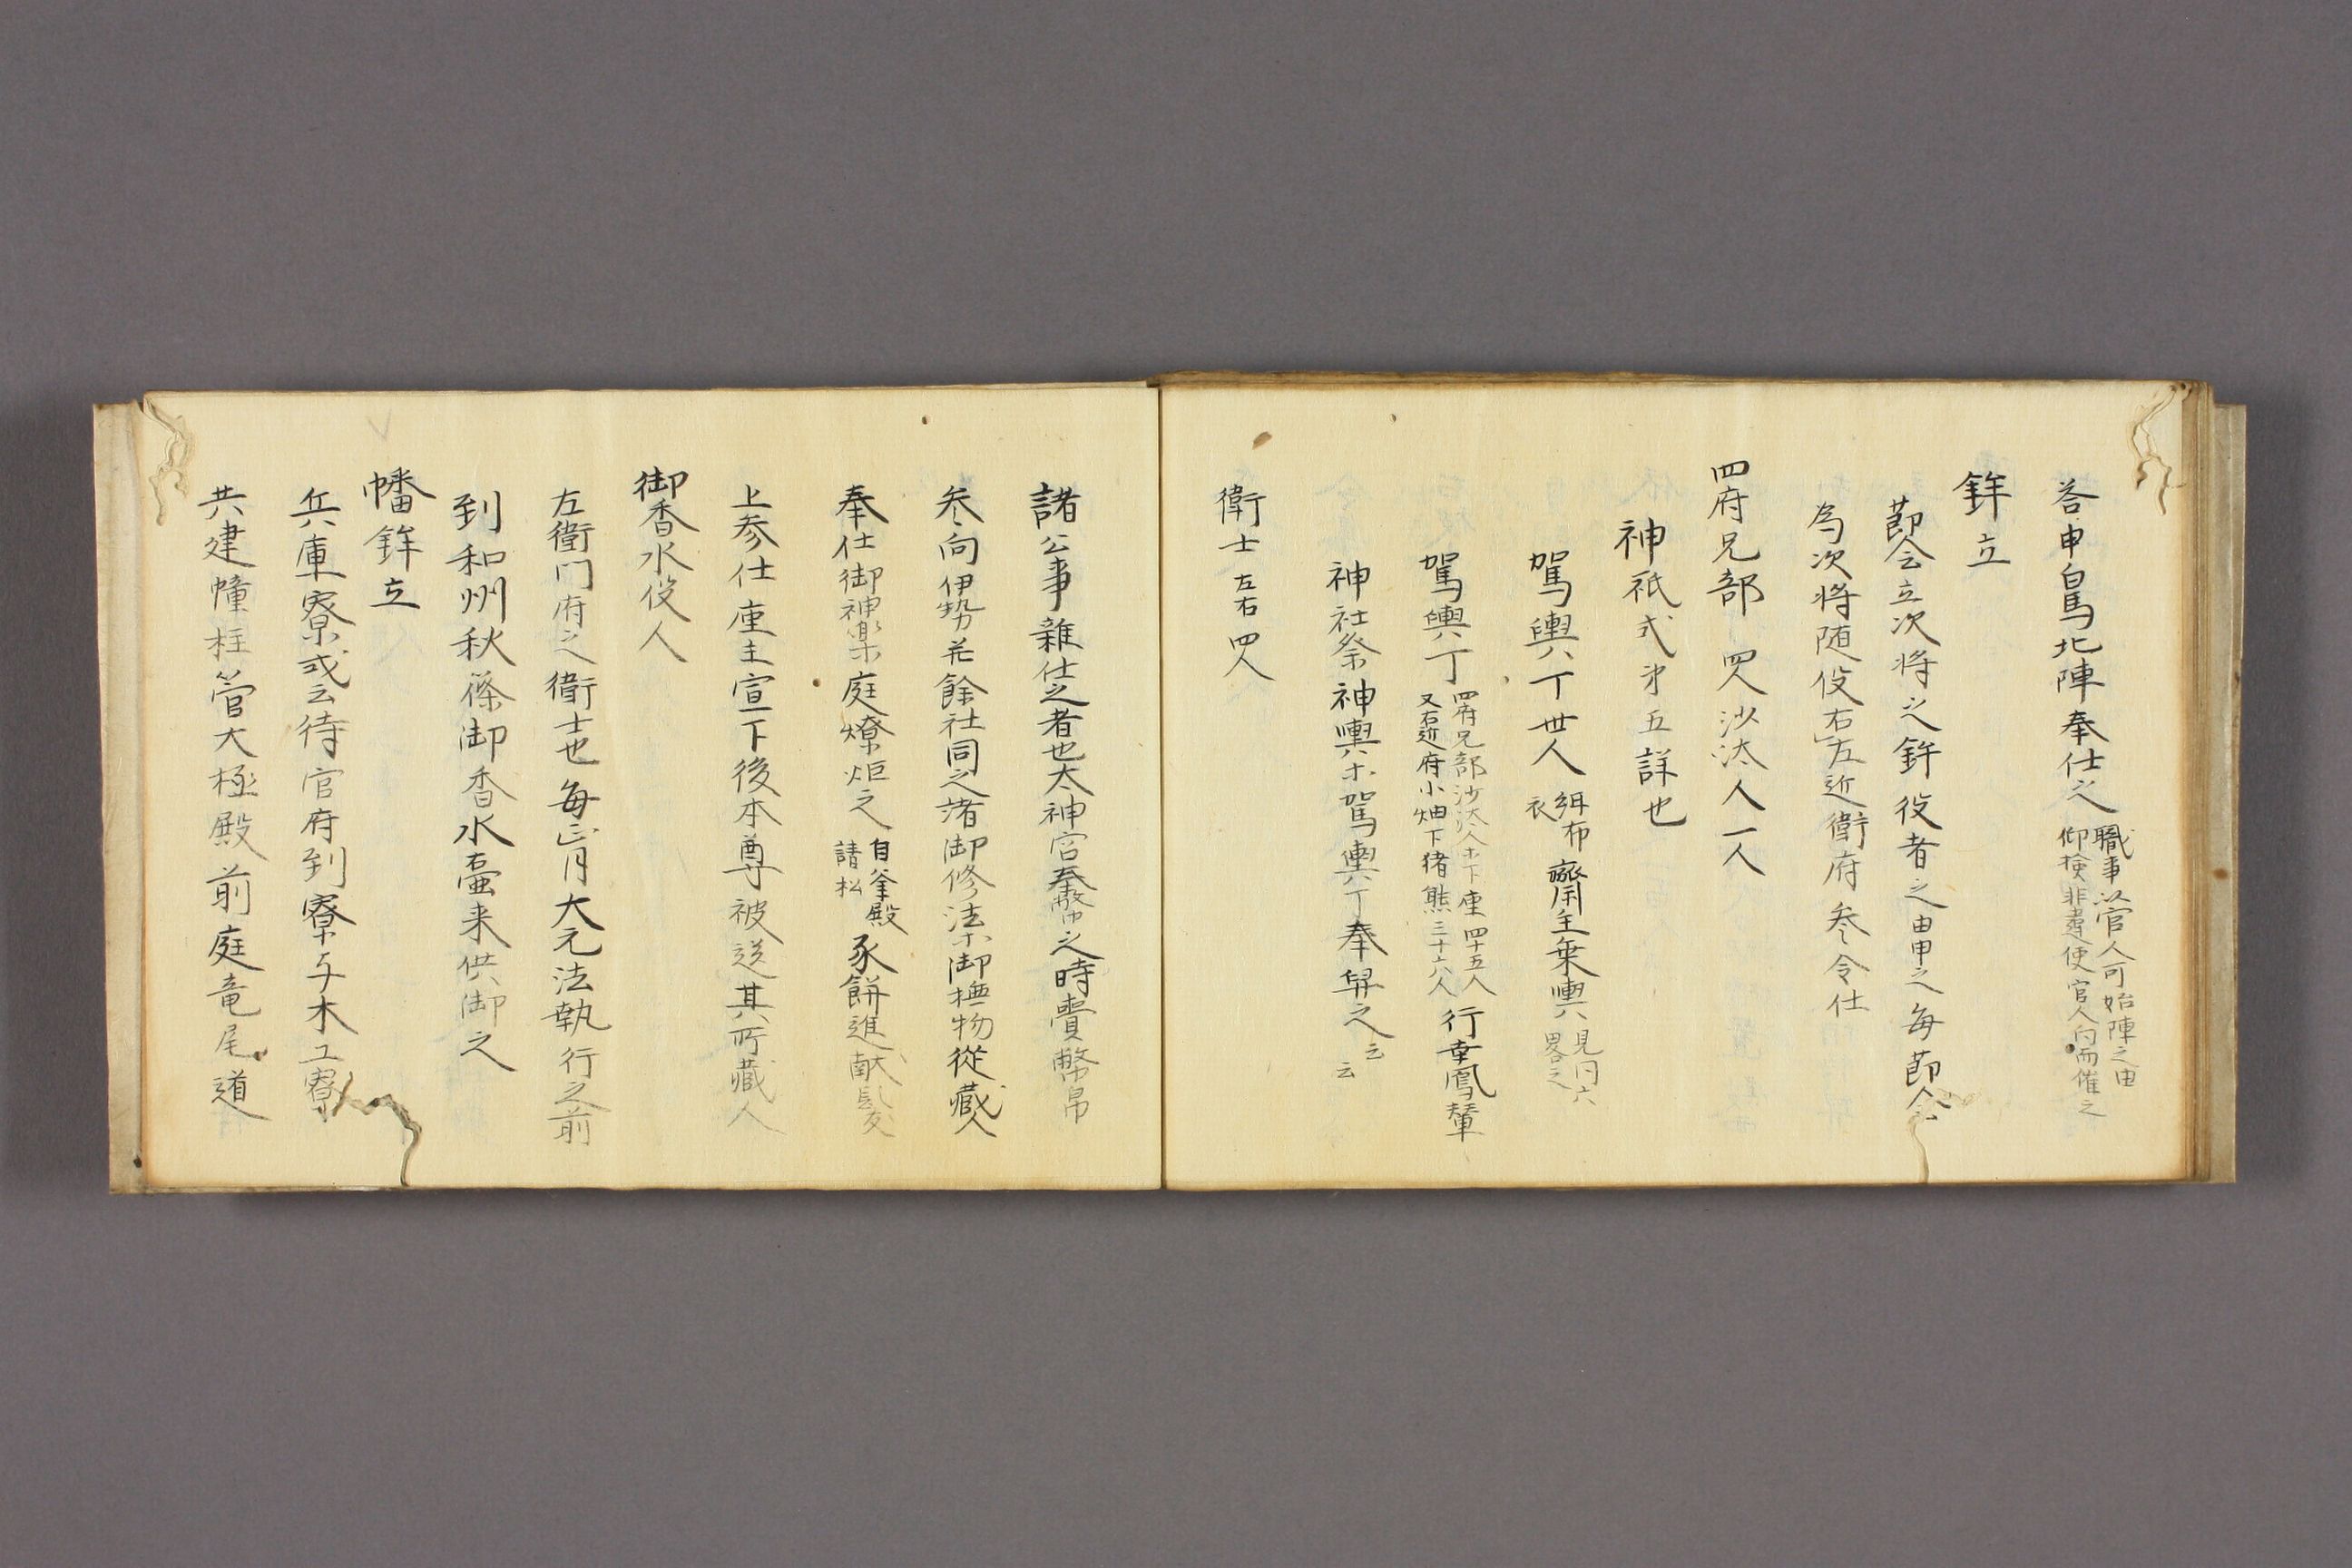 答申白馬北陣奉仕之 職事以官人可始陣之由
仰検非違使官人向而催之
鉾立
節会立次将之鉾役者之由申之毎節会
為次将随役右左近衛府参令仕
四府兄部 四人沙汰人一人
神祇式才五詳也
駕輿丁卅人 緝布
衣 齋主乗輿 見同六
畧之
駕輿丁 四府兄部沙汰人木下座四十五人
又右近府小畑下猪熊三十六人 行幸鳳輦
神社祭神輿木駕輿丁奉舁之云云
衛士 左右四人
諸公事雜仕之者也太神宮奉幣之時賷幣帛
参向伊勢并餘社同之諸御修法木御撫物従蔵人
奉仕御神楽庭燎炬之 自釜殿
請松 豕餅進献髪
上参仕座主宣下後本尊被送其所蔵人
御香水役人
左衛门府之衛士也毎正月大元法執行之前
到和州秋篠御香水壷来供御之
幡鉾立
兵庫寮或云待官府到寮与木工寮
共建幢柱管大極殿前庭竜尾道